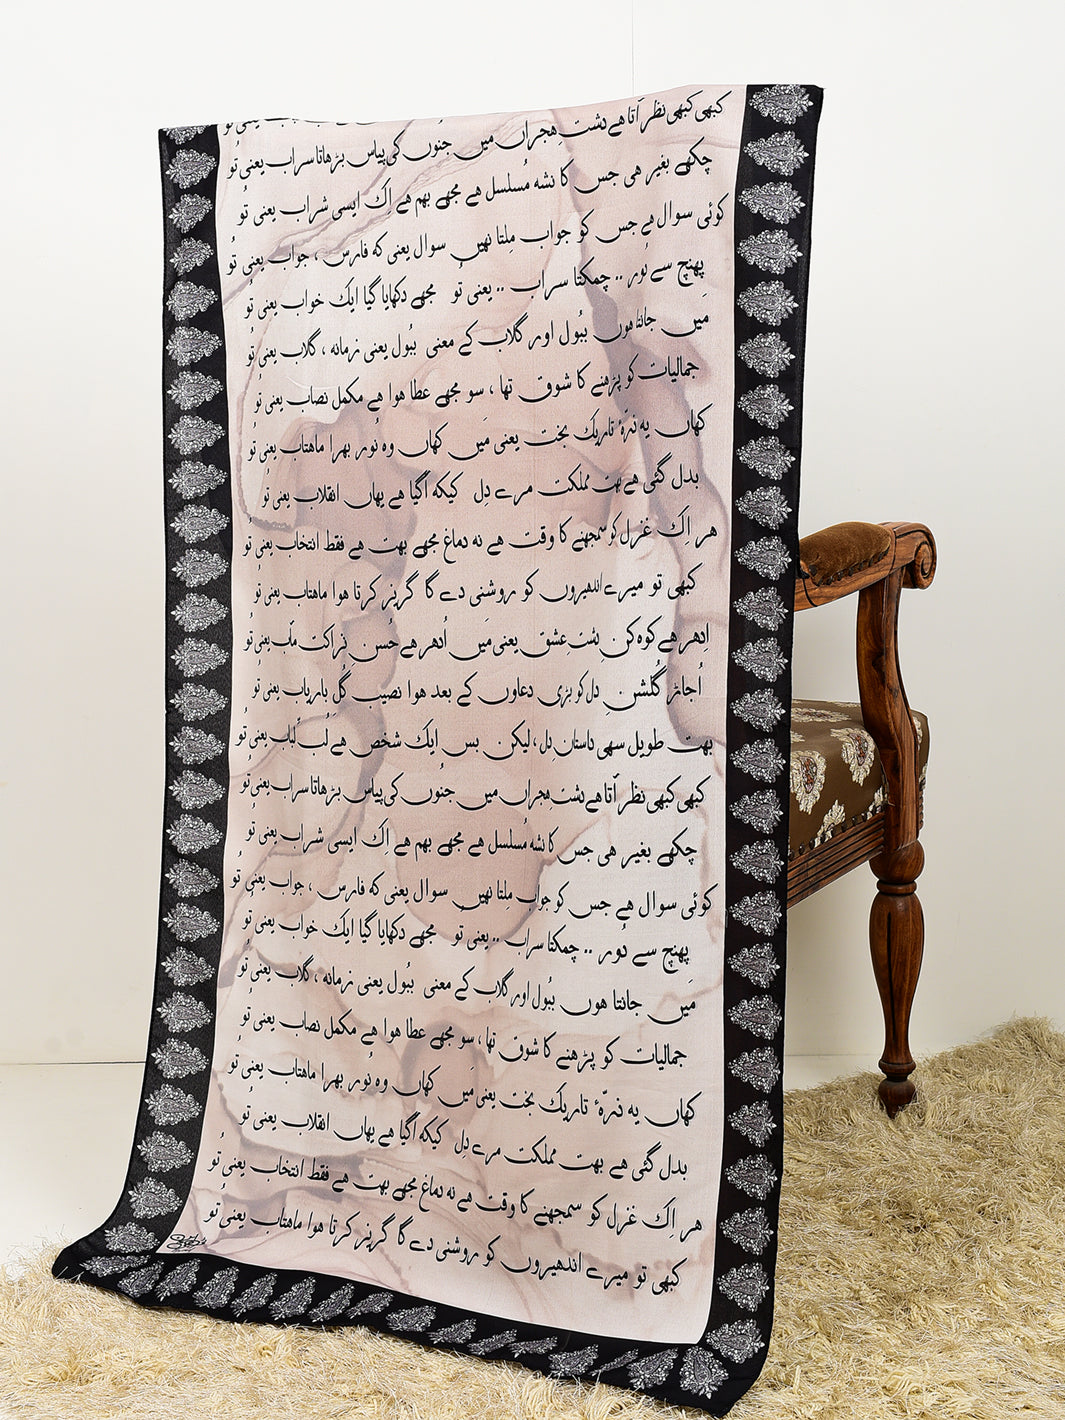 کبھی کبھی نظر آتا ہے دشتِ ہجراں میں جنُوں کی پیاس بڑھاتا سراب یعنی تُو
چکھے بغیر ہی جس کا نشہ مُسلسل ہے مجھے بہم ہے اِک ایسی شراب یعنی تُو
کوئی سوال ہے جس کو جواب مِلتا نہیں سوال یعنی کہ فارس ، جواب یعنی تُو
پہنچ سے دُور .. چمکتا سراب .. یعنی تُو مجھے دکھایا گیا ایک خواب یعنی تُو
مَیں جانتا ہوں ببُول اور گلاب کے معنی ببُول یعنی زمانہ ، گلاب یعنی تُو
جمالیات کو پڑھنے کا شوق تھا ، سو مجھے عطا ہوا ہے مکمل نصاب یعنی تُو
کہاں یہ ذرّۂ تاریک بخت یعنی مَیں کہاں وہ نُور بھرا ماہتاب یعنی تُو
بدل گئی ہے بہت مملکت مرے دِل کی کہ آگیا ہے یہاں انقلاب یعنی تُو
ہر اِک غزل کو سمجھنے کا وقت ہے نہ دماغ مجھے بہت ہے فقط انتخاب یعنی تُو
کبھی تو میرے اندھیروں کو روشنی دے گا گریز کرتا ہوا ماہتاب یعنی تُو
اِدھر ہے کوہ کن دشتِ عشق یعنی مَیں اُدھر ہے حُسن نزاکت مآب یعنی تُو
اُجاڑ گُلشنِ دِل کو بڑی دعاوں کے بعد ہوا نصیب گُلِ باریاب یعنی تُو
بہت طویل سہی داستانِ دِل ، لیکن بس ایک شخص ہے لُبِ لُباب یعنی تُو
کبھی کبھی نظر آتا ہے دشتِ ہجراں میں جنُوں کی پیاس بڑھاتا سراب یعنی تُو
چکھے بغیر ہی جس کا نشہ مُسلسل ہے مجھے بہم ہے اِک ایسی شراب یعنی تُو
کوئی سوال ہے جس کو جواب مِلتا نہیں سوال یعنی کہ فارس ، جواب یعنی تُو
پہنچ سے دُور .. چمکتا سراب .. یعنی تُو مجھے دکھایا گیا ایک خواب یعنی تُو
مَیں جانتا ہوں ببُول اور گلاب کے معنی ببُول یعنی زمانہ ، گلاب یعنی تُو
جمالیات کو پڑھنے کا شوق تھا ، سو مجھے عطا ہوا ہے مکمل نصاب یعنی تُو
کہاں یہ ذرّۂ تاریک بخت یعنی مَیں کہاں وہ نُور بھرا ماہتاب یعنی تُو
بدل گئی ہے بہت مملکت مرے دِل کی کہ آگیا ہے یہاں انقلاب یعنی تُو
ہر اِک غزل کو سمجھنے کا وقت ہے نہ دماغ مجھے بہت ہے فقط انتخاب یعنی تُو
کبھی تو میرے اندھیروں کو روشنی دے گا گریز کرتا ہوا ماہتاب یعنی تُو